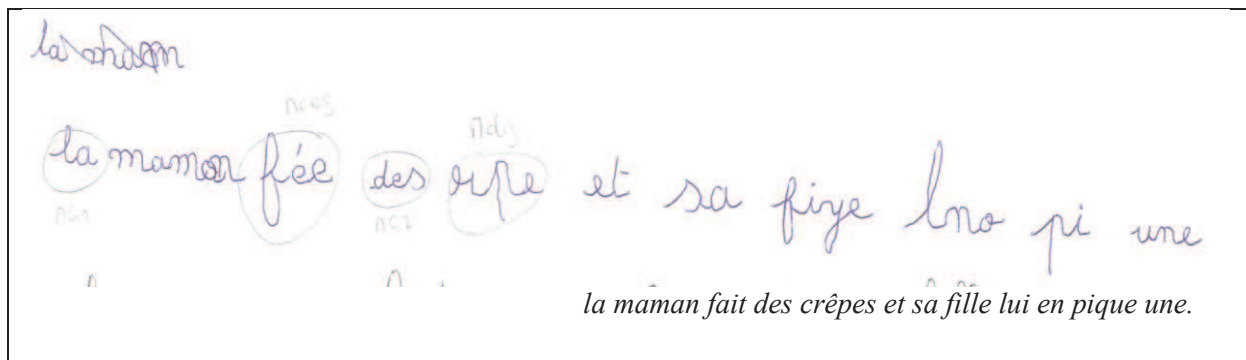 la
la maman fée des crpe et sa fiye lno pi une
la maman fait des crêpes et sa fille lui en pique une.